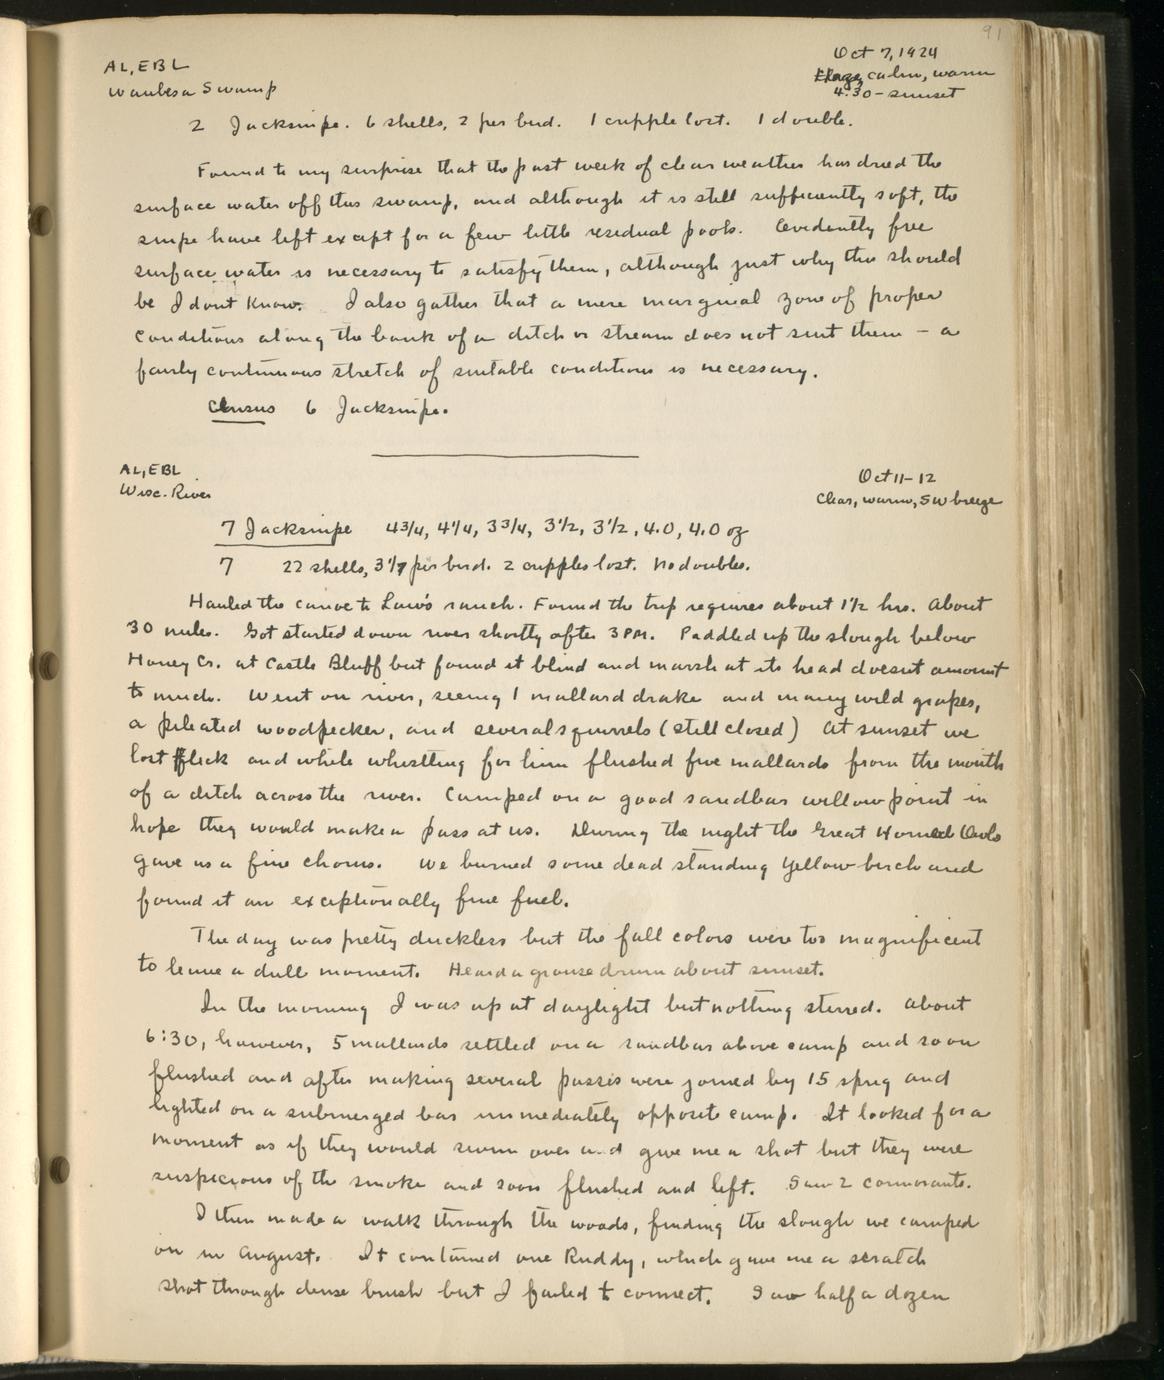 91
AL, EBL
Waubesa Swamp
Oct 7, 1924
Hazy, calm, warm
4:30 - sunset
2 Jacksnipe. 6 shells, 2 per bird. 1 cripple lost. 1 double.
Found to my surprise that the past week of clear weather has dried the
surface water off this swamp, and although it is still sufficiently soft, the
snipe have left except for a few little residual pools. Evidently free
surface water is necessary to satisfy them, although just why this should
be I dont know. I also gather that a mere marginal zone of proper
conditions along the bank of a ditch or stream does not suit them - a
fairly continuous stretch of suitable conditions is necessary.
Census 6 Jacksnipe.
AL, EBL
Wisc. River
Oct 11-12
Clear, warm, SW breeze
7 Jacksnipe 4 3/4, 4 1/4, 3 3/4, 3 1/2, 3 1/2, 4.0, 4.0 oz
7 22 shells, 3 1/7 per bird. 2 cripples lost. No doubles.
Hauled the canoe to Law's ranch. Found the trip requires about 1 1/2 hrs. About
30 miles. Got started down river shortly after 3 PM. Paddled up the slough below
Honey Cr. at Castle Bluff but found it blind and marsh at its head doesnt amount
to much. Went on river, seeing 1 mallard drake and many wild grapes,
a pileated woodpecker, and several squirrels (still closed) At sunset we
lost Flick and while whistling for him flushed five mallards from the mouth
of a ditch across the river. Camped on a good sandbar willow point in
hope they would make a pass at us. During the night the Great Horned Owls
gave us a fine chorus. We burned some dead standing Yellow birch and
found it an exceptionally fine fuel.
The day was pretty duckless but the fall colors were too magnificent
to leave a dull moment. Heard a grouse drum about sunset.
In the morning I was up at daylight but nothing stirred. About
6:30, however, 5 mallards settled on a sandbar above camp and soon
flushed and after making several passes were joined by 15 sprig and
lighted on a submerged bar immediately opposite camp. It looked for a
moment as if they would swim over and give me a shot but they were
suspicious of the smoke and soon flushed and left. Saw 2 cormorants.
I then made a walk through the woods, finding the slough we camped
on in August. It contained one Ruddy, which gave me a scratch
shot through dense brush but I failed to connect. Saw half a dozen